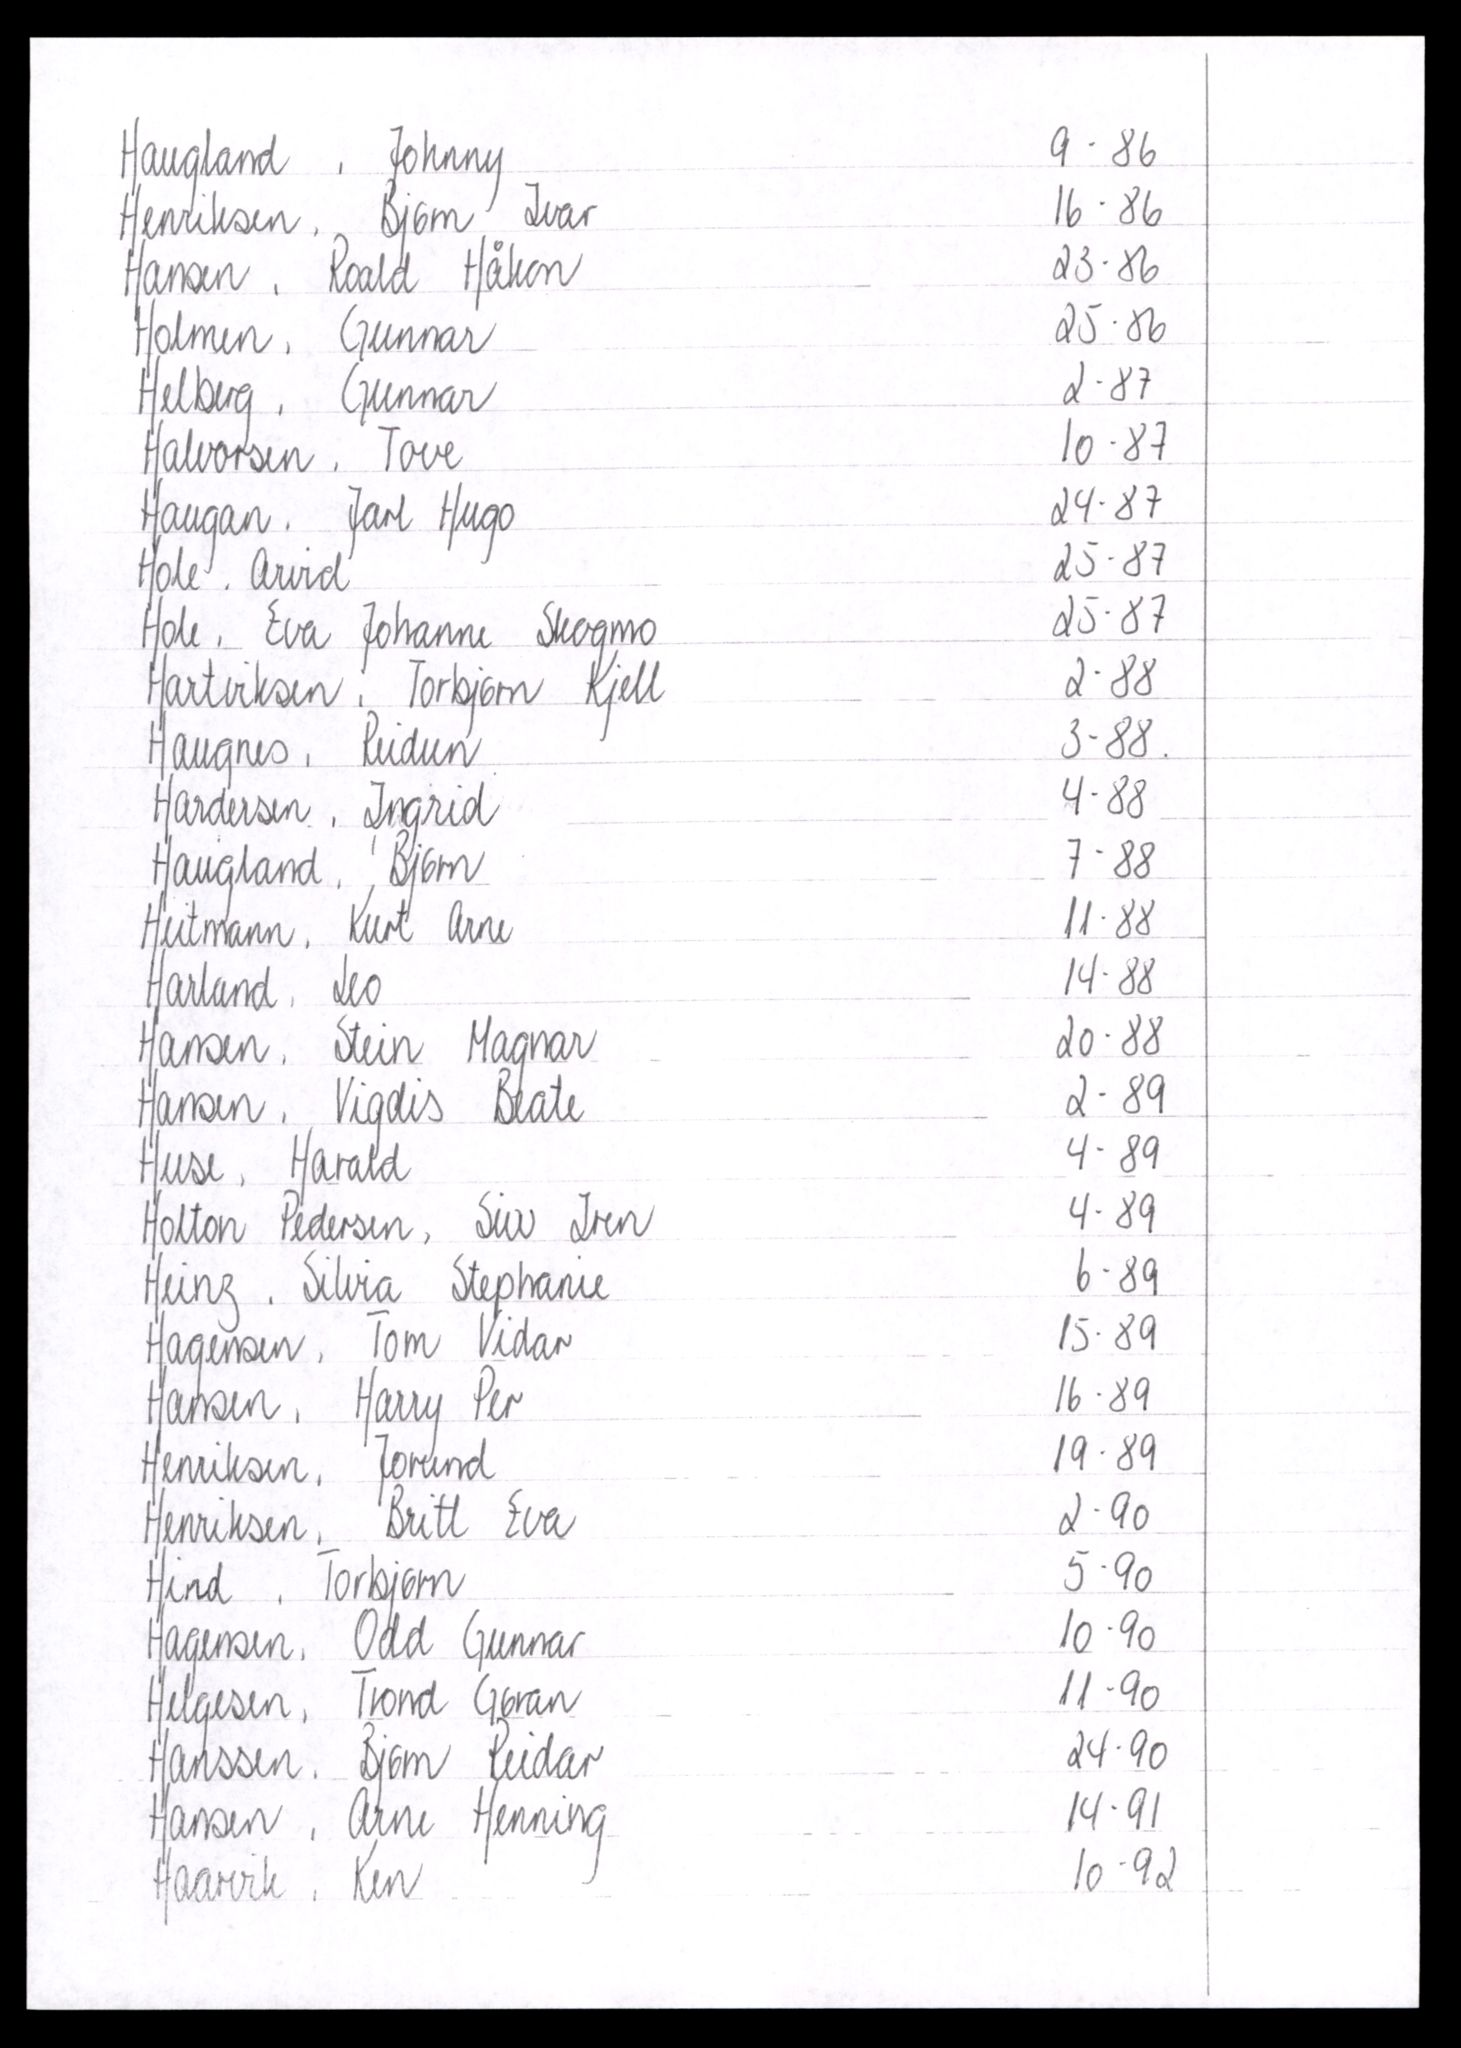 Haugland, Johnny 9-86
Henriksen, Bjørn Ivar 16-86
Hansen, Roald Håkon 23-86
Holmen, Gunnar 25-86
Helberg, Gunnar 2-87
Halvorsen, Tove 10-87
Haugan, Jarl Hugo 24-87
Hole, Arvid 25-87
Hole, Eva Johanne Skogmo 25-87
Hartviksen, Torbjørn Kjell 2-88
Haugnes, Reidun 3-88.
Hardersen, Ingrid 4-88
Haugland, Bjørn 7-88
Heitmann, Kurt Arne 11-88
Harland, Leo 14-88
Hansen, Stein Magnar 20-88
Hansen, Vigdis Beate 2-89
Huse, Harald 4-89
Holton Pedersen, Siw Iren 4-89
Heinz, Silvia Stephanie 6-89
Hagensen, Tom Vidar 15-89
Hansen, Harry Per 16-89
Henriksen, Jorund 19-89
Henriksen, Britt Eva 2-90
Hind, Torbjørn 5-90
Hagensen, Odd Gunnar 10-90
Helgesen, Trond Gøran 11-90
Hanssen, Bjørn Reidar 24-90
Hansen, Arne Henning 14-91
Haarvik, Ken 10-92